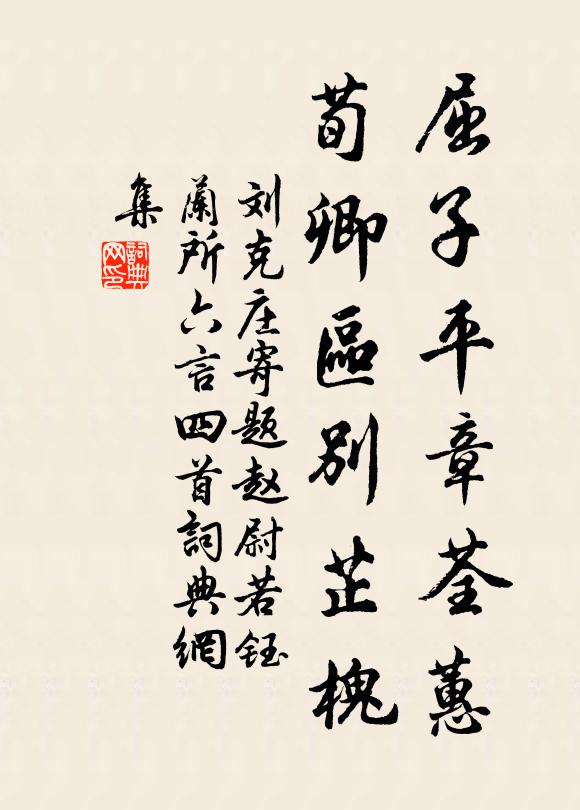 屈子平章荃蕙
荀卿區别芷槐
刘克庄寄题赵尉若钰
蘭所六言四首詞典網
集
詞典網印